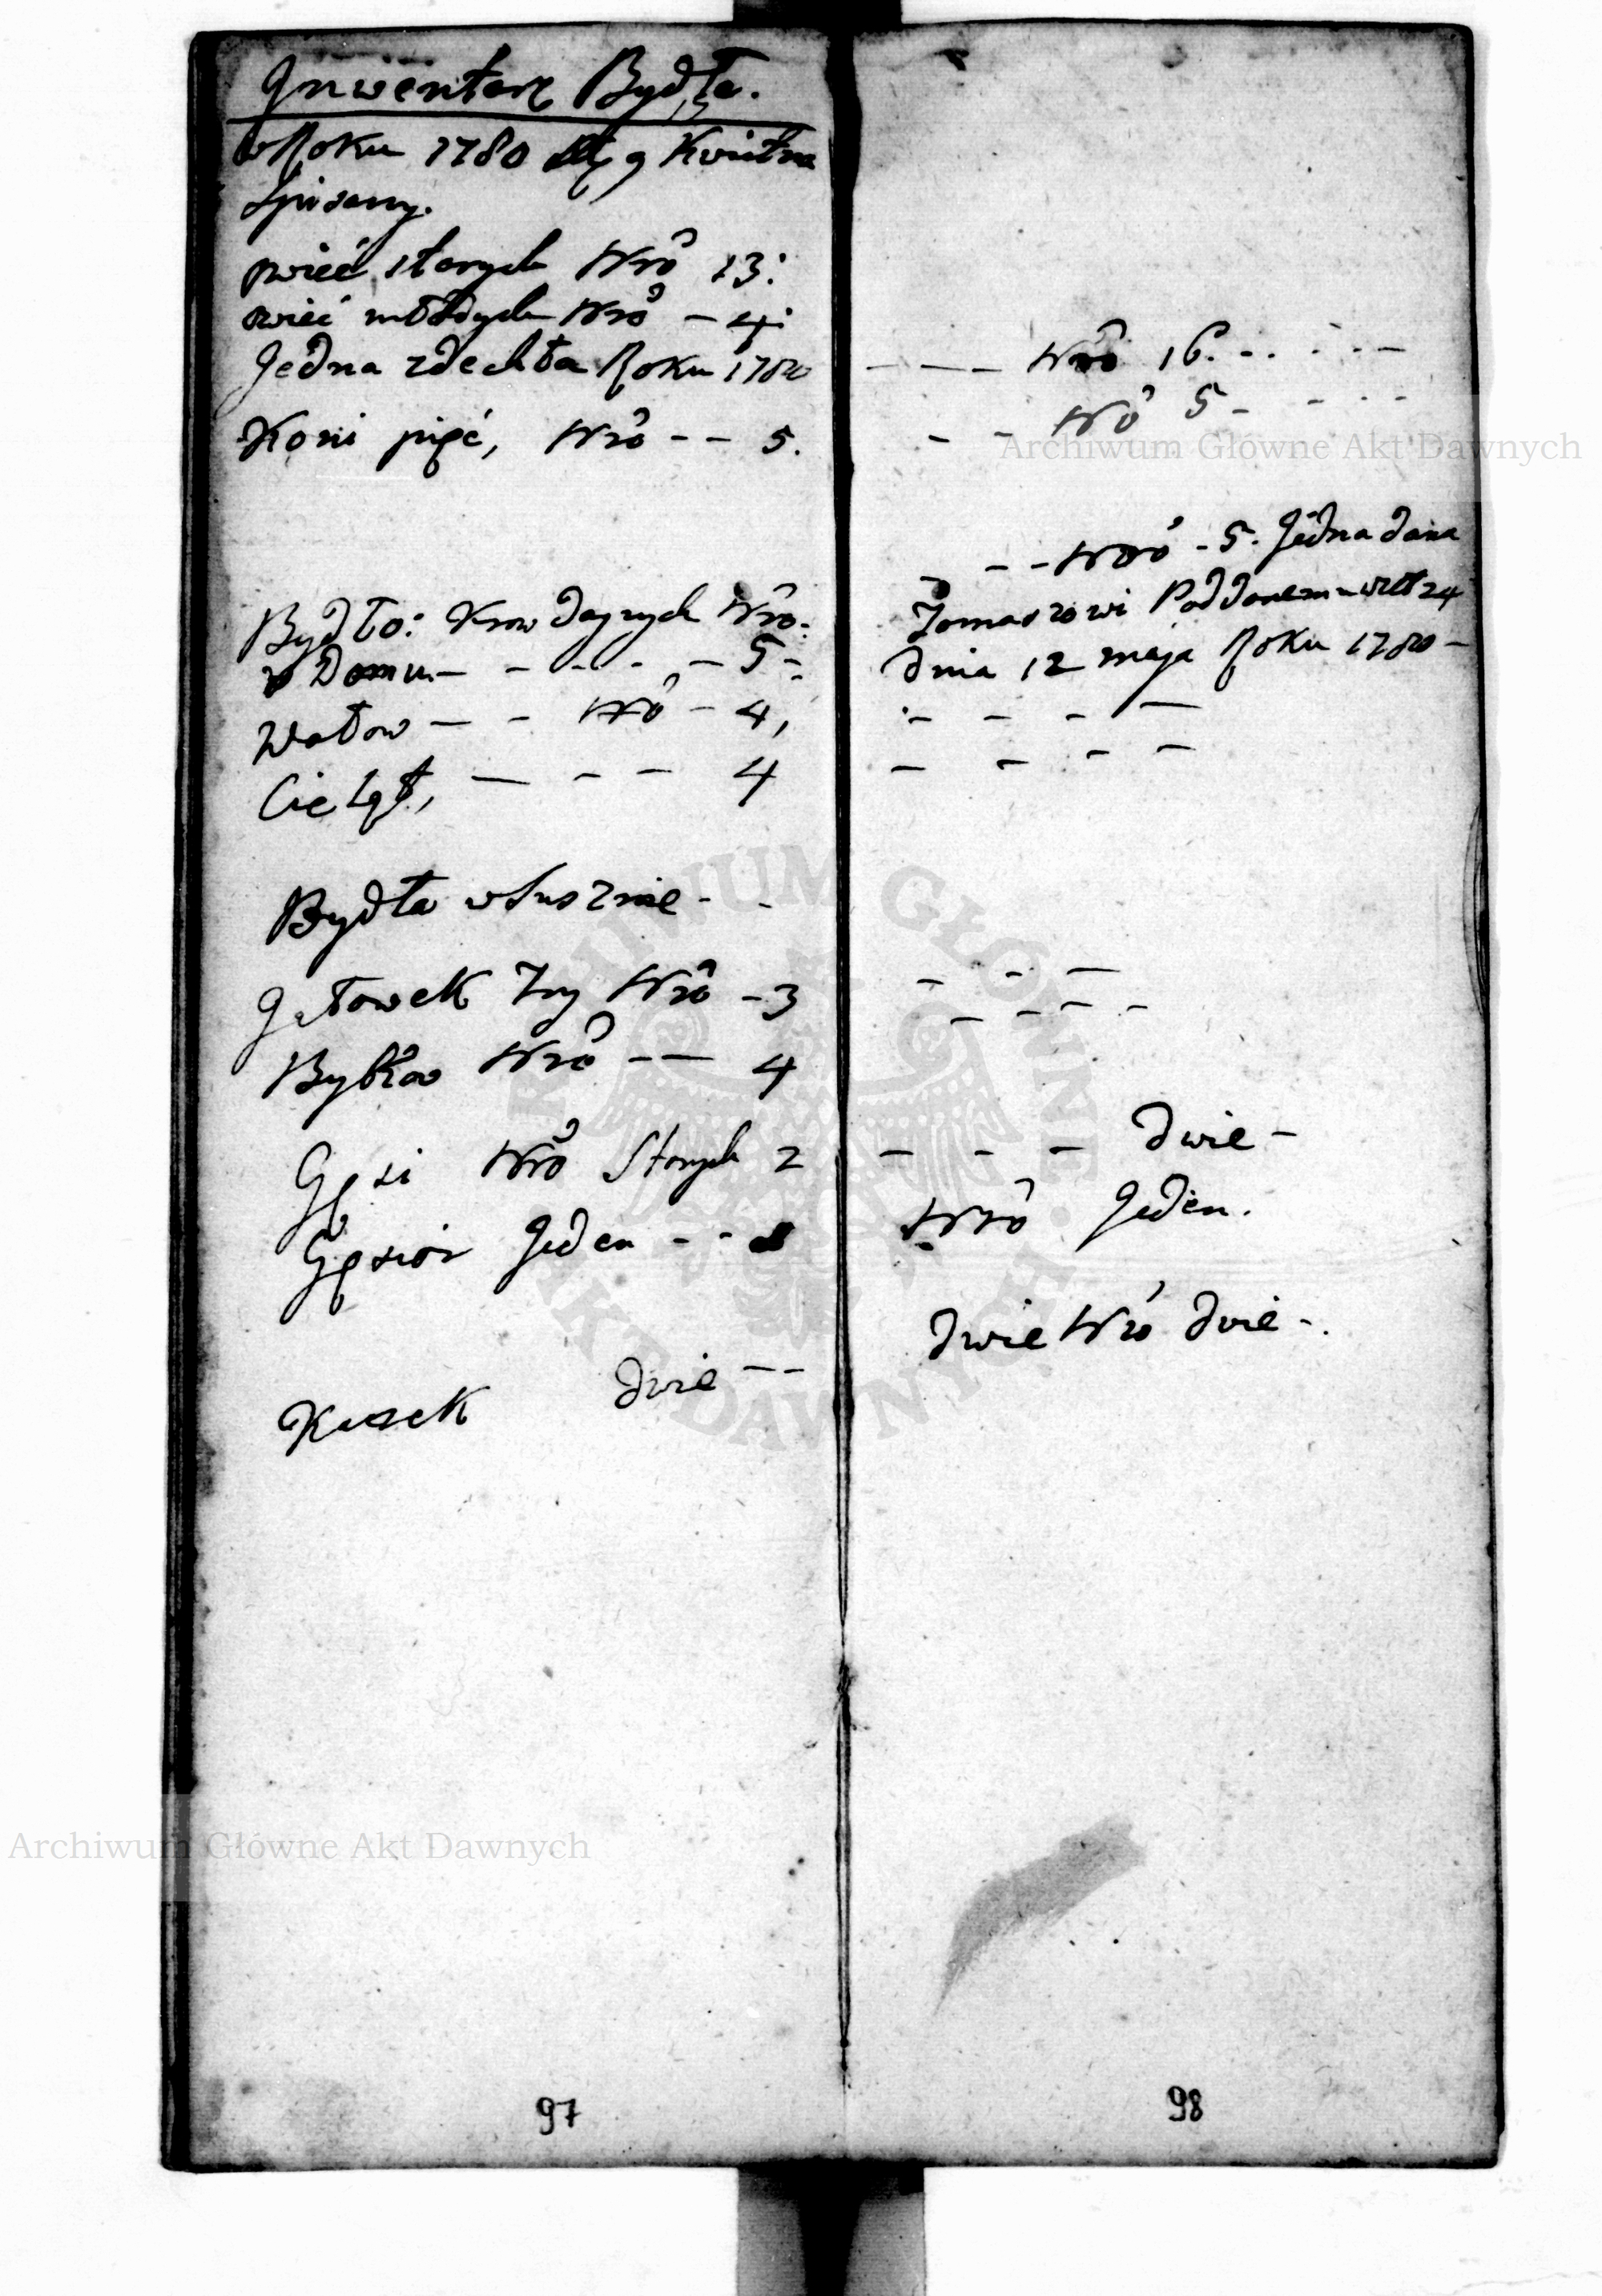 Inwentarz Bydła.
w Roku 1780 9 Kwietna
Spisany.
owiec starych Nro 13:
owiec młodych Nro – 4:
Jedna zdechła Roku 1780
Koni pięć, Nro – – 5.
Bydło: Krow doynych Nro:
w Domu – – – – – 5 –
Wołow – – Nro – 4,
Cieląt, – – – 4
Bydła w – –
Jałowek Try Nro – 3
Bykow Nro – – 4
Gęsi Nro Starych 2
Gęsior Jeden – –
Kaczek dwie – –
97
– – – Nro 16. – – – – –
– – Nro 5 – – – –
– – Nro – 5. Jedna dana
Tomaszowi Poddanemu 24
dnia 12 maja Roku 1780 –
– – – –
– – – –
– – –
– – – –
– – – dwie –
Nro Jeden.
dwie Nro dwie –.
98
Archiwum Główne Akt Dawnych
Archiwum Główne Akt Dawnych
ARCHIWUM GŁÓWNE AKT DAWNYCH